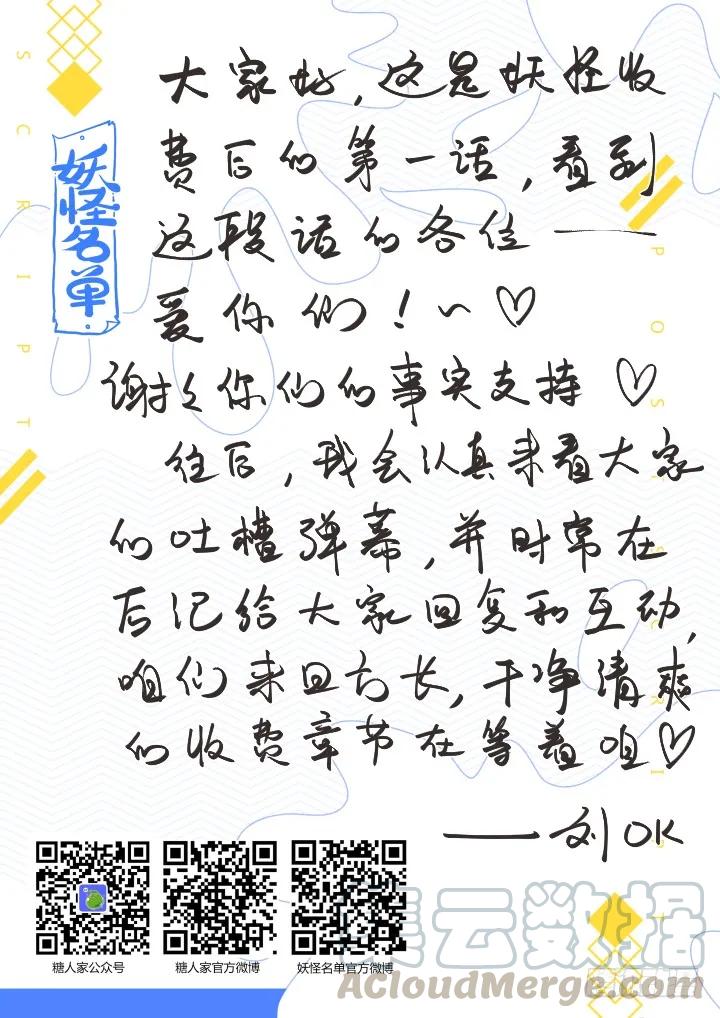 SCRIPT
妖怪名单
大家好，这是妖怪收
费后的第一话，看到
这段话的各位——
爱你们！~♡
谢谢你们的事实支持♡
往后，我会认真来看大家
的吐槽弹幕，并时常在
后记给大家回复和互动，
咱们来日方长，干净清爽
的收费章节在等着咱♡
——刘OK
POSTSCRIPT
糖人家公众号
糖人家官方微博
妖怪名单官方微博
集云数据
AcloudMerge.com